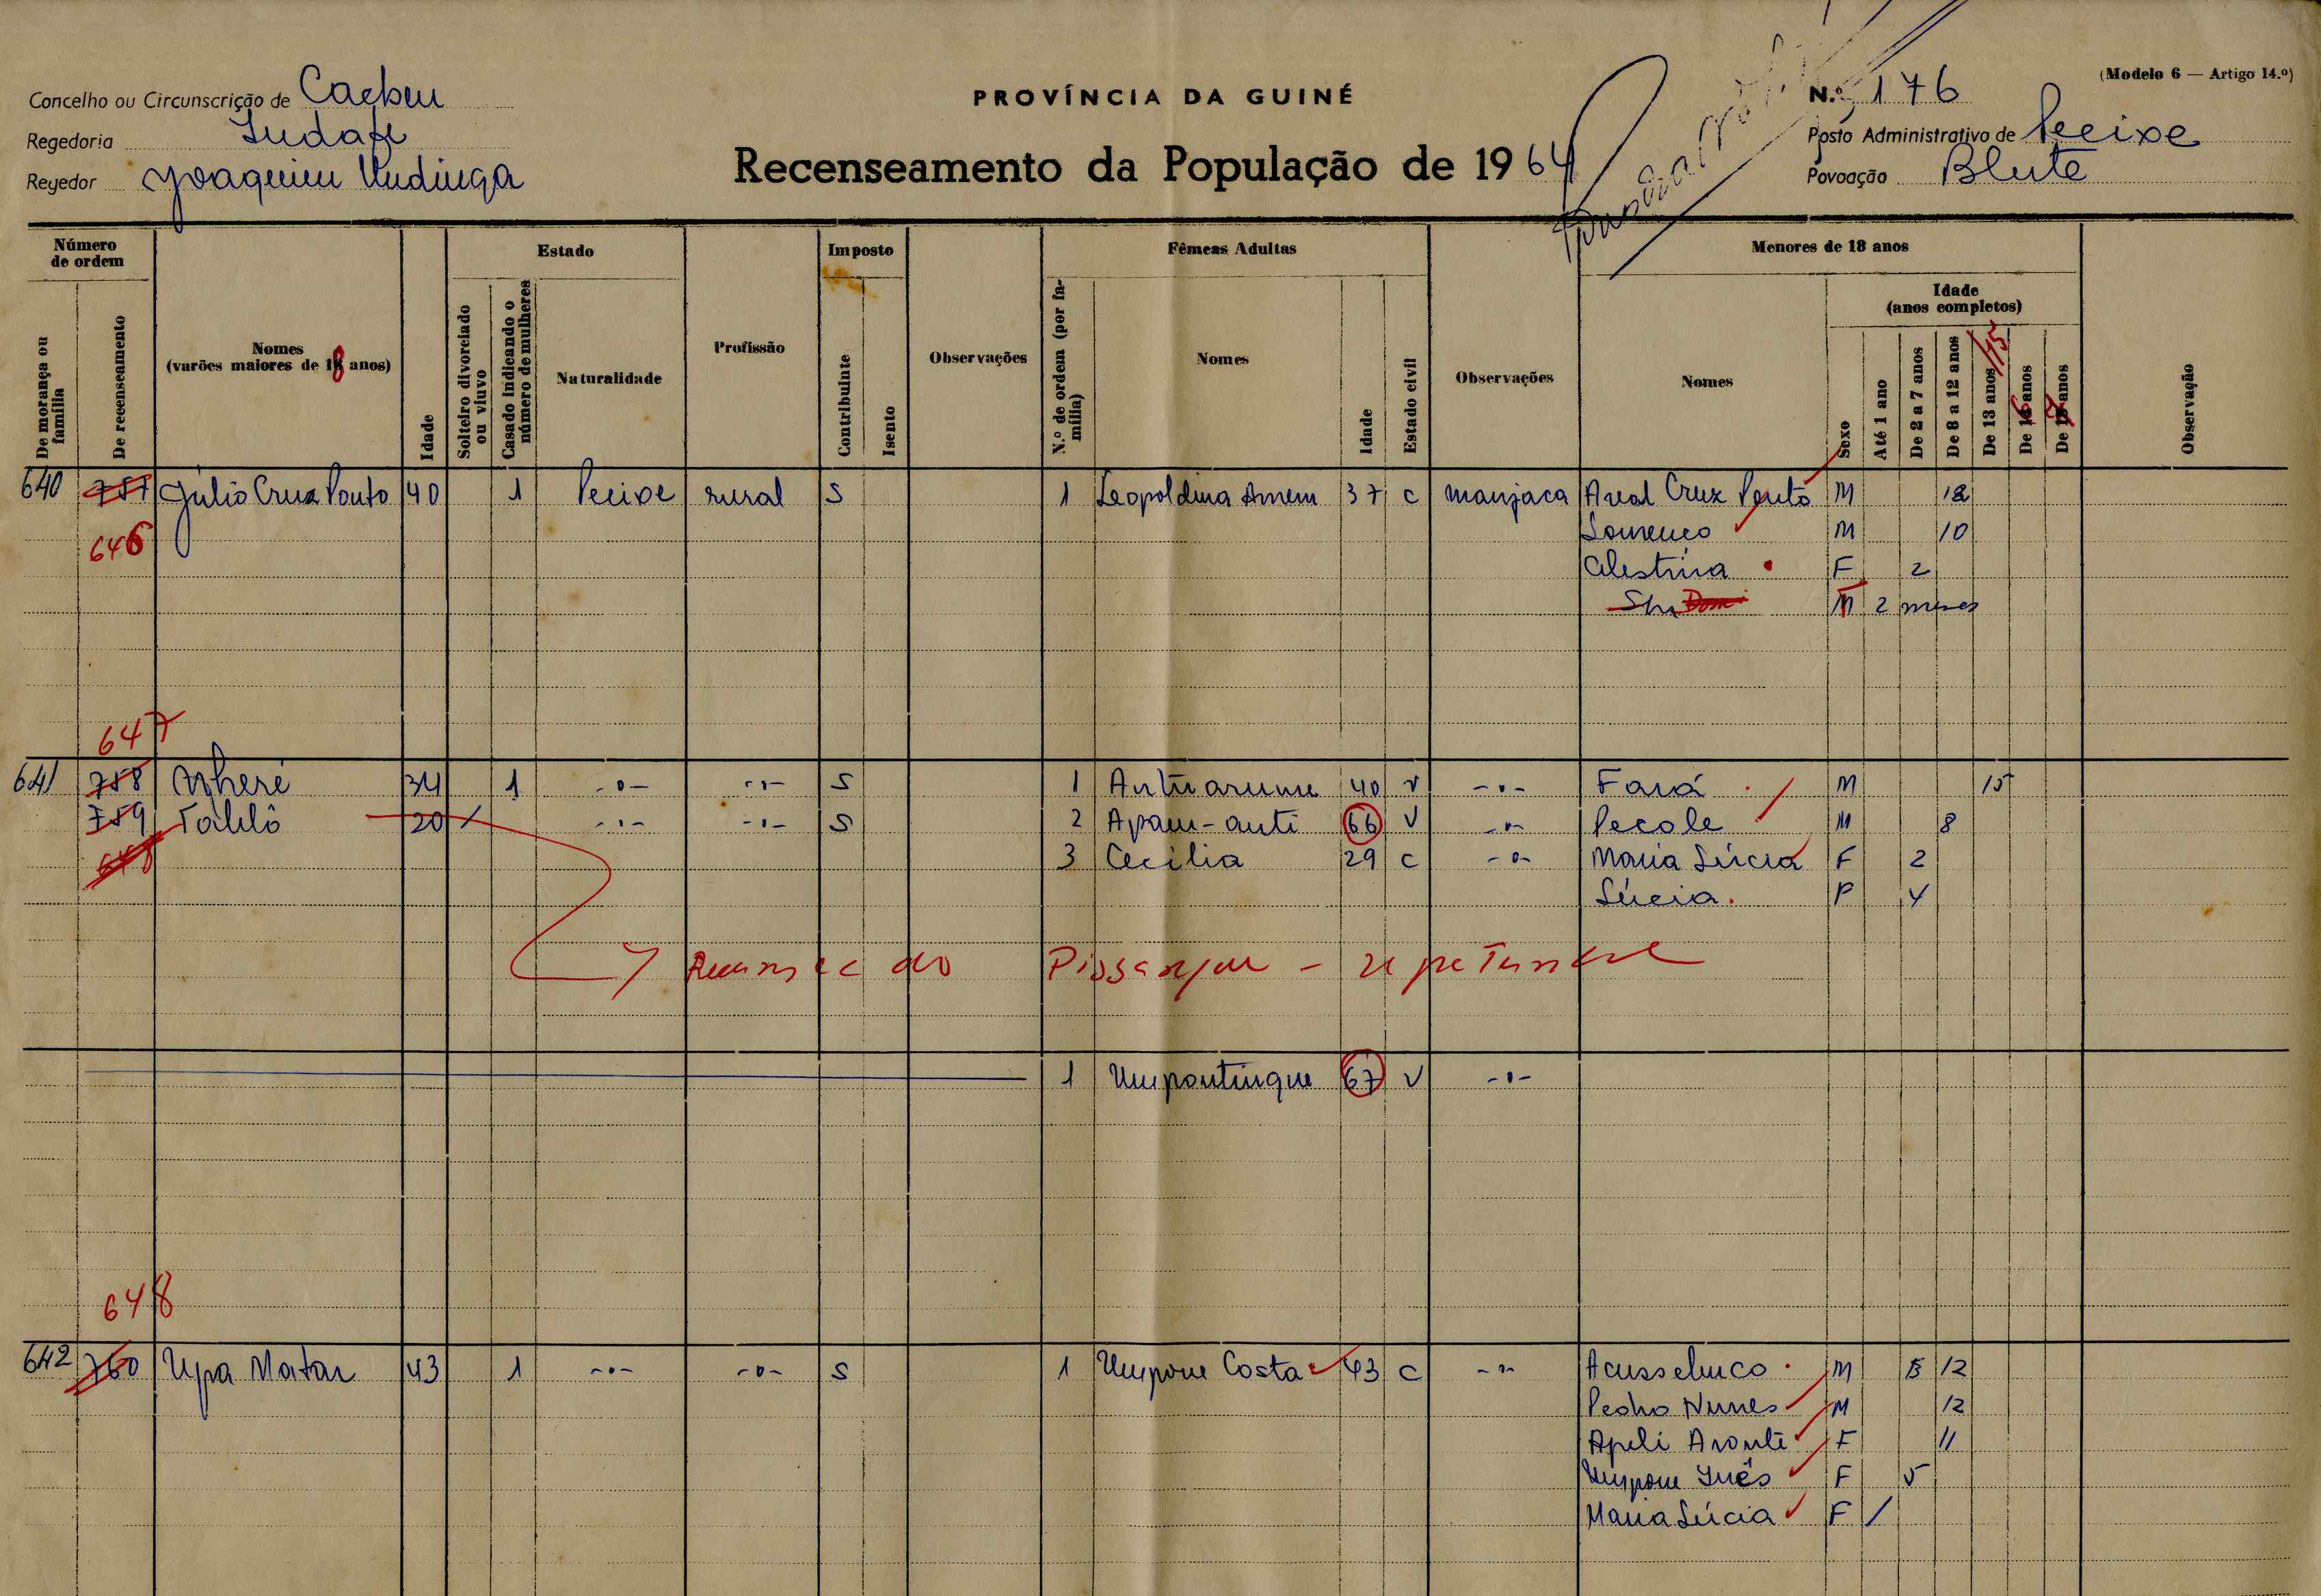 (Modelo 6 — Artigo 14.º)
PROVÍNCIA DA GUINÉ
Concelho ou Circunscrição de Cacheu
N.º 176
Regedoria
Posto Administrativo de Pecixe
Regedor Joaquim
Recenseamento da População de 1964
Povoação Blute
Número de ordem
De morança ou família
De recenseamento
Nomes (varões maiores de 18 anos)
Idade
Estado
Solteiro divorciado ou viuvo
Casado indicando o número de mulheres
Naturalidade
Profissão
Imposto
Contribuinte
Isento
Observações
Fêmeas Adultas
N.º de ordem (por família)
Nomes
Idade
Estado civil
Observações
Menores de 18 anos
Nomes
Sexo
Idade (anos completos)
Até 1 ano
De 2 a 7 anos
De 8 a 12 anos
De 13 anos /15
De 16 anos
De 17 anos
Observação
640 757 Júlio Cruz Pouto 40 1 Pecixe rural S 1 Leopoldina 37 C manjaca Cruz Pouto M 12
646 Lourenço M 10
Celestina F 2
M 2 meses
647
641 758 34 1 -0- -"- S 1 40 V -"- Fará M 15
759 20 / -"- -"- S 2 66 V -"- Pecole M 8
648 3 Cecilia 29 C -"- Maria Lúcia F 2
Lúcia F 4
1 67 V -"-
648
642 760 Upa Matar 43 1 -"- -"- S 1 Umpone Costa 43 C -"- M 12
Pedro Nunes M 12
Apeli F 11
Umpone Inês F 5
Maria Lúcia F /